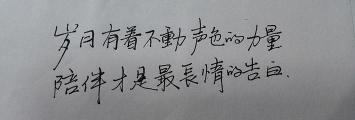 岁月有着不動声色的力量
陪伴才是最長情的告白.